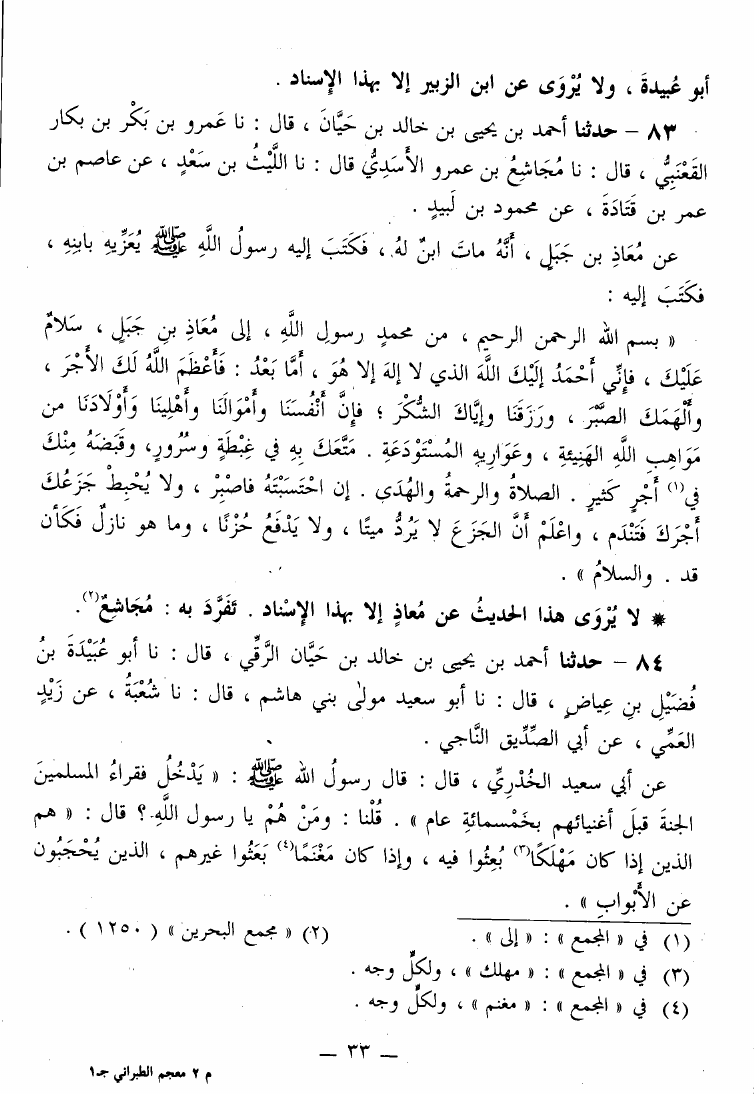 أبو عُبيدةَ ، ولا يُرْوَى عن ابن الزبير إلا بهذا الإسناد .
٨٣ – حدثنا أحمد بن يحيى بن خالد بن حَيَّانَ ، قال : نا عَمرو بن بَكْر بن بكار
القَعْنَبِيُّ ، قال : نا مُجَاشِعُ بن عمرو الأَسَدِيُّ قال : نا اللَّيْثُ بن سَعْدٍ ، عن عاصم بن
عمر بن قَتَادَةَ ، عن محمود بن لَبِيدٍ .
عن مُعَاذِ بن جَبَلٍ ، أَنَّهُ ماتَ ابنٌ لهُ ، فَكَتَبَ إليه رسولُ اللَّهِ ﷺ يُعَزِّيهِ بابنِهِ ،
فكَتَبَ إليه :
« بسم الله الرحمن الرحيم ، من محمدٍ رسولِ اللَّهِ ، إلى مُعَاذِ بنِ جَبَلٍ ، سَلامٌ
عَلَيْكَ ، فإنِّي أَحْمَدُ إلَيْكَ اللَّهَ الذي لا إلهَ إلا هُوَ ، أمَّا بَعْدُ : فَأَعْظَمَ اللَّهُ لَكَ الأجْرَ ،
وأَلْهَمَكَ الصَّبْرَ ، ورَزَقَنَا وإيَّاكَ الشُّكْرَ ؛ فإنَّ أَنْفُسَنَا وأمْوَالَنَا وأهْلِينَا وَأَوْلَادَنَا من
مَوَاهِبِ اللَّهِ الهَنِيئةِ ، وعَوَارِيهِ المُسْتَوْدَعَةِ . مَتَّعَكَ بِهِ في غِبْطَةٍ وسُرُورٍ، وقَبَضَهُ مِنْكَ
في(١) أَجْرٍ كَثيرٍ . الصلاةُ والرحمةُ والهُدَى . إن احْتَسَبْتَهُ فاصْبِرْ ، ولا يُحْبِطْ جَزَعُكَ
أَجْرَكَ فَتَنْدَم ، واعْلَمْ أَنَّ الجَزَعَ لا يَرُدُّ ميتًا ، ولا يَدْفَعُ حُزْنًا ، وما هو نازلٌ فَكأن
قد . والسلامُ » .
* لا يُرْوَى هذا الحديثُ عن مُعَاذٍ إلا بهذا الإسْناد . تَفَرَّدَ به : مُجَاشِعٌ(٢).
٨٤ – حدثنا أحمد بن يحيى بن خالد بن حَيَّان الرَّقِّي ، قال : نا أبو عُبَيْدَةَ بنُ
فُضَيْلِ بنِ عِياضٍ ، قال : نا أبو سعيد مولى بني هاشم ، قال : نا شُعْبَةُ ، عن زَيْدٍ
العَمِّي ، عن أبي الصِّدِّيق النَّاجي .
عن أبي سعيد الخُدْرِيِّ ، قال : قال رسولُ الله ﷺ : « يَدْخُلُ فقراءُ المسلمينَ
الجنةَ قبلَ أغنيائهم بخَمْسمائةِ عام » . قُلْنا : ومَنْ هُمْ يا رسول اللَّهِ ؟ قال : « هم
الذين إذا كان مَهْلَكًا(٣) بُعِثُوا فيه ، وإذا كان مَغْنَمًا(٤) بَعَثُوا غيرهم ، الذين يُحْجَبُون
عن الأَبْوابِ » .
(١) في « المجمع » : « إلى » . (٢) « مجمع البحرين » ( ١٢٥٠ ) .
(٣) في « المجمع » : « مهلك » ، ولكلٍّ وجه .
(٤) في « المجمع » : « مغنم » ، ولكلٍّ وجه .
– ٣٣ –
م ٢ معجم الطبراني جـ١